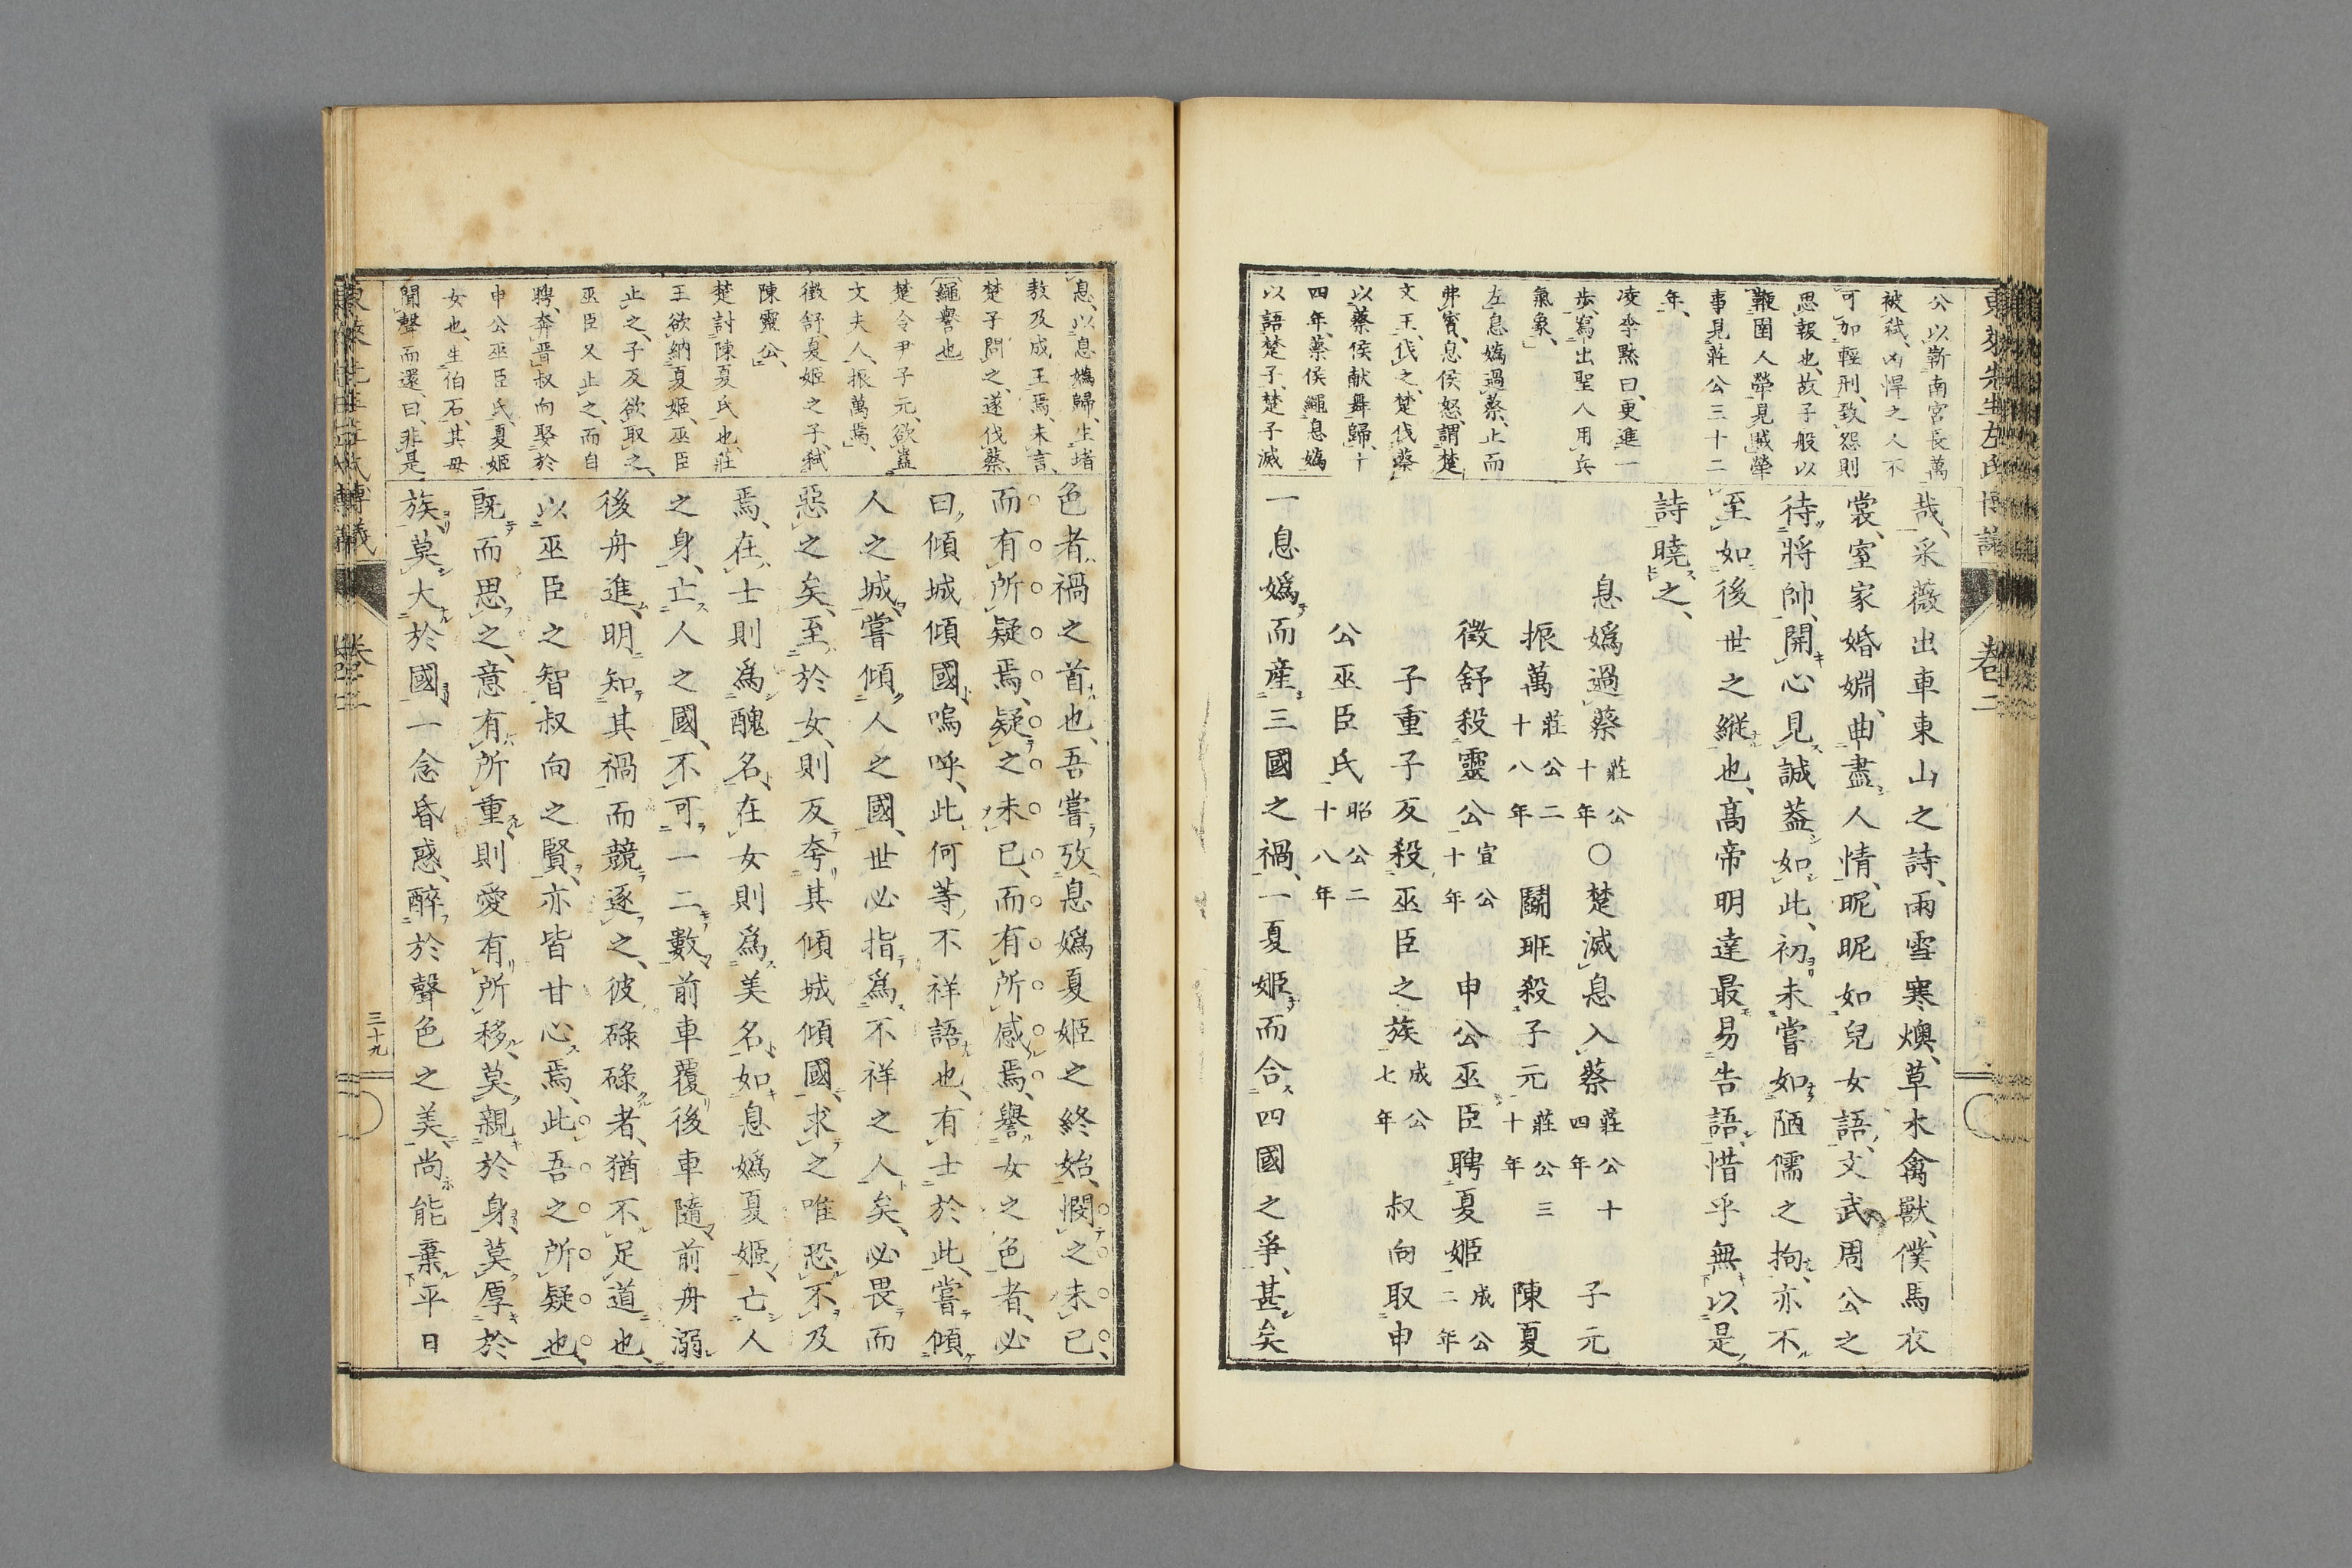 東萊先生左氏博議
卷二
公、以靳南宮長萬
被弑、凶悍之人不
可加輕刑、致怨則
思報也、故子般以
鞭圉人犖見賊犖
事見莊公三十二
年、
凌季黙曰、更進一
步、寫出聖人用兵
氣象、
左息嬀過蔡、止而
弗賓、息侯怒、謂楚
文王、伐之、楚伐蔡
以蔡侯献舞歸、十
四年、蔡侯繩息嬀
以語楚子、楚子滅
哉、采薇出車東山之詩、雨雪寒燠、草木禽獸、僕馬衣
裳、室家婚婣、曲盡人情、昵昵如兒女語、文武周公之
待將帥、開心見誠葢如此、初未嘗如陋儒之拘、亦不
至如後世之縱也、高帝明達最易告語、惜乎無以是
詩曉之、
息嬀過蔡莊公十年○楚滅息入蔡莊公十四年 子元
振萬莊公二十八年 鬬班殺子元莊公三十年 陳夏
徵舒殺靈公宣公十年 申公巫臣聘夏姬成公二年
子重子反殺巫臣之族成公七年 叔向取申
公巫臣氏昭公二十八年
一息嬀而產三國之禍、一夏姬而合四國之爭、甚矣
息、以息嬀歸、生堵
敖及成王焉、未言、
楚子問之、遂伐蔡、
繩譽也
楚令尹子元、欲蠱
文夫人、振萬焉、
徵舒、夏姬之子、弑
陳靈公、
楚討陳夏氏也、莊
王欲納夏姬、巫臣
止之、子反欲取之、
巫臣又止之、而自
聘、奔晋叔向娶於
申公巫臣氏、夏姬
女也、生伯石、其母
聞聲而還、曰、非是
色者、禍之首也、吾嘗攷息嬀夏姬之終始、憫之未已、
而有所疑焉、疑之未已、而有所感焉、譽女之色者、必
曰、傾城傾國、嗚呼、此何等不祥語也、有士於此、嘗傾
人之城、嘗傾人之國、世必指爲不祥之人矣、必畏而
惡之矣、至於女、則反夸其傾城傾國、求之唯恐不及
焉、在士則爲醜名、在女則爲美名、如息嬀夏姬、亡人
之身、亡人之國、不可一二數、前車覆後車隨、前舟溺
後舟進、明知其禍而競逐之、彼碌碌者、猶不足道也、
以巫臣之智叔向之賢、亦皆甘心焉、此吾之所疑也、
既而思之、意有所重、則愛有所移、莫親於身、莫厚於
族、莫大於國、一念昏惑、醉於聲色之美、尚能棄平日
卷二
三十九